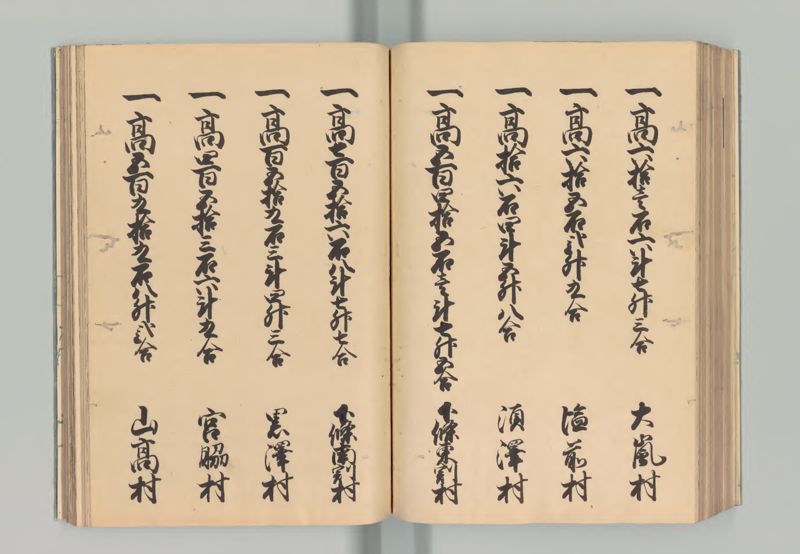 一高六拾壱石六斗七升三合 大嵐村
一高六拾五石弐升九合 塩前村
一高拾六石四斗五升八合 須澤村
一高五百四拾五石壱斗七升五合 下條東割村
一高七百五拾六石八斗七升七合 下條南割村
一高百五拾九石三斗四升三合 黒澤村
一高四百五拾三石六斗九合 宮脇村
一高五百九拾九石八升弐合 山高村